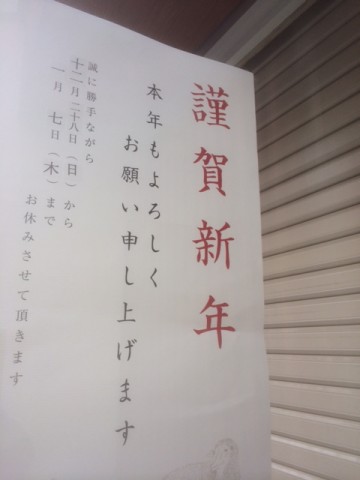 謹賀新年
本年もよろしく
お願い申し上げます
誠に勝手ながら
十二月二十八日(日)から
一月 七日(木)まで
お休みさせて頂きます